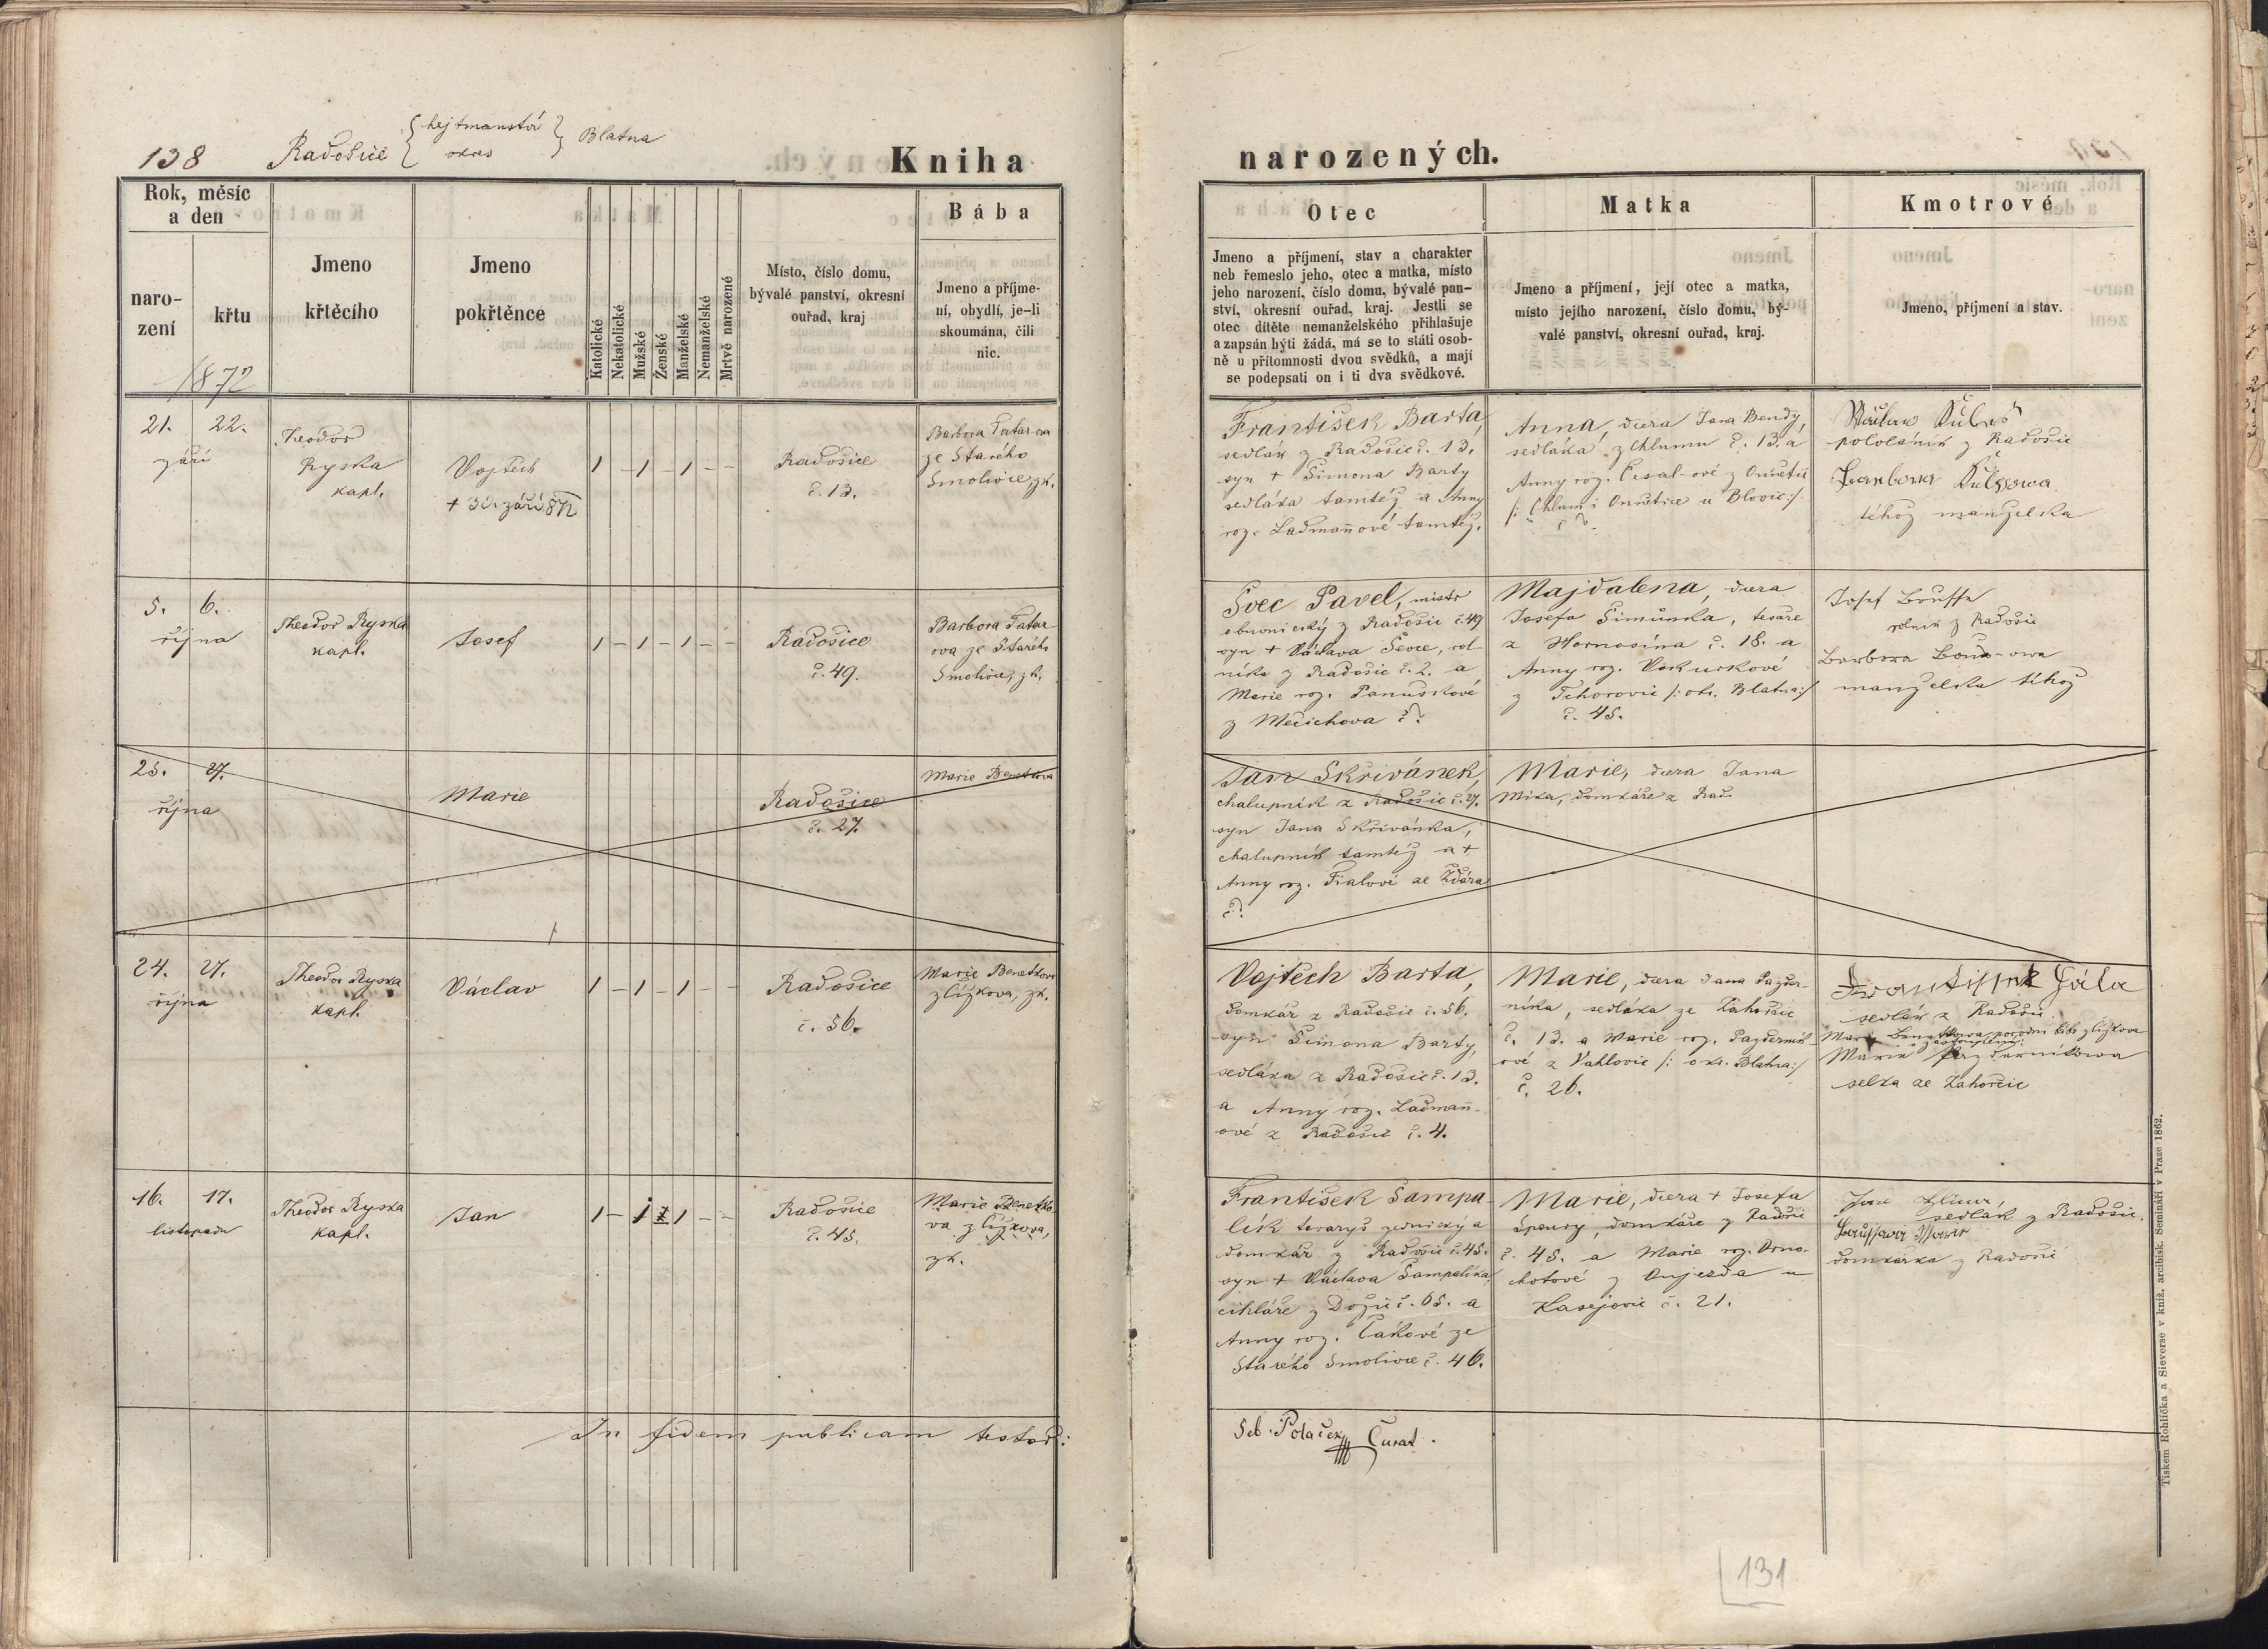 138 Radošice { hejtmanství okres } Blatna
Kniha narozených.
Rok, měsíc
a den
naro-
zení
křtu
1872
Jmeno
křtěcího
Jmeno
pokřtěnce
Katolické
Nekatolické
Mužské
Ženské
Manželské
Nemanželské
Mrtvě narozené
Místo, číslo domu,
bývalé panství, okresní
ouřad, kraj
Bába
Jmeno a příjme-
ní, obydlí, je-li
skoumána, čili
nic.
Otec
Jmeno a příjmení, stav a charakter
neb řemeslo jeho, otec a matka, místo
jeho narození, číslo domu, bývalé pan-
ství, okresní ouřad, kraj. Jestli se
otec dítěte nemanželského přihlašuje
a zapsán býti žádá, má se to státi osob-
ně u přítomnosti dvou svědků, a mají
se podepsati on i ti dva svědkové.
Matka
Jmeno a příjmení, její otec a matka,
místo jejího narození, číslo domu, bý-
valé panství, okresní ouřad, kraj.
Kmotrové
Jmeno, příjmení a stav.
21. 22.
září
Theodor
Ryska
kapl.
Vojtěch
+ 30. září 872
1 – 1 – 1 – –
Radošice
č. 13.
Barbora Tatar-ova
ze Starého
Smolivce, zk.
František Barta,
sedlák z Radošic č. 13,
syn + Šimona Barty
sedláka tamtéž a Anny
roz. Ladmanové tamtéž.
Anna, dcera Jana Bendy,
sedláka z Chlumu č. 13. a
Anny roz. Česal-ové z
/: Chlum i u Blovic :/
č ?
pololáník z Radošic
téhož manželka
5. 6.
října
Theodor Ryska
kapl.
Josef
1 – 1 – 1 – –
Radošice
č. 49.
Barbora Tatar-
ova ze Starého
Smolivce, zk.
Švec Pavel, mistr
obuvnický z Radošic č. 49
syn + Václava Ševce, rol-
níka z Radošic č. 2. a
Marie roz. Panuškové
z Mečichova č ?
Majdalena, dcera
Josefa Šimůnka, tesaře
z Hornosína č. 18. a
Anny roz. Vokurkové
z Tchorovic /: okr. Blatna :/
č. 45.
Josef
rolník z Radošic
Barbora
manželka téhož
25. 27.
října
Marie
Radošice
č. 27.
Marie Benetkova
Jan Skřivánek,
chalupník z Radošic č. 27.
syn Jana Skřivánka,
chalupník tamtéž a +
Anny roz. Fialové ze Ždára
č ?
Marie, dcera Jana
Mika, domkáře z Rad.
24. 27.
října
Theodor Ryska
kapl.
Václav
1 – 1 – 1 – –
Radošice
č. 56.
Marie Benetkova
z Lízkova, zk.
Vojtěch Barta,
domkář z Radošic č. 56.
syn Šimona Barty,
sedláka z Radošic č. 13.
a Anny roz. Ladman-
ové z Radošic č. 4.
Marie, dcera Jana Pazder-
níka, sedláka ze Záhorčic
č. 13. a Marie roz. Pazderník-
ové z Vahlovic /: okr. Blatna :/
č. 26.
František Jála
sedlák z Radošic
Marie Benetkowa porodní bába z Lizkova
zastoupení:
Marie Pazderníkowa
selka ze Záhorčic
16. 17.
listopadu
Theodor Ryska
kapl.
Jan
1 – 1 1 – –
Radošice
č. 45.
Marie Benetko-
va z Lízkova,
zk.
František Šampa-
lík tovaryš zednický a
domkář z Radošic č. 45.
syn + Václava Šampalíka,
cihláře z Dožic č. 65. a
Anny roz. Čákové ze
Starého Smolivce č. 46.
Marie, dcera + Josefa
Špoury, domkáře z Radošic
č. 45. a Marie roz. Drno-
chotové z Oujezda u
Kasejovic č. 21.
sedlák z Radošic.
domkářka z Radošic
In fidem publicam testor:
Seb. Polaček Curat.
Tiskem Rohlíčka a Sieverse v kníž. arcibisk. Semináři v Praze 1862.
131